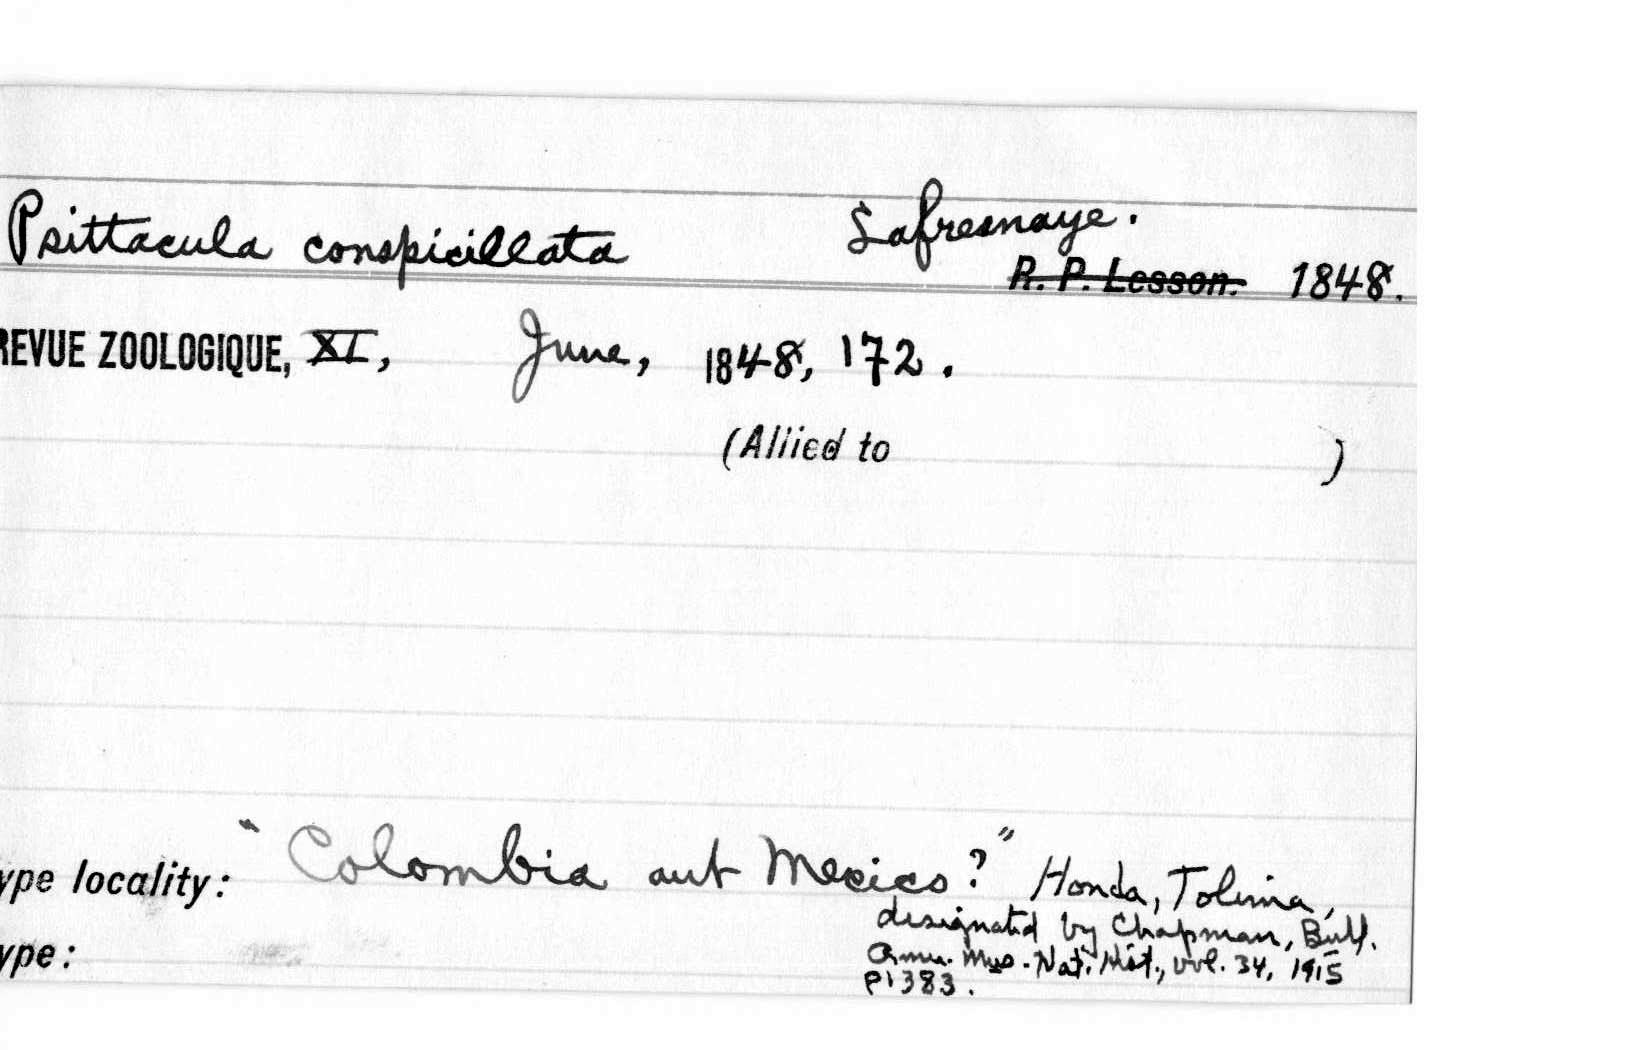 Psittacula conspicillata Lafresnaye.
R. P. Lesson. 1848.
REVUE ZOOLOGIQUE, XI, June, 1848, 172.
(Allied to )
ype locality: "Colombia aut Mexico?" Honda, Tolima,
designated by Chapman, Bull.
Amer. Mus. Nat. Hist., vol. 34, 1915
p. 383.
ype: